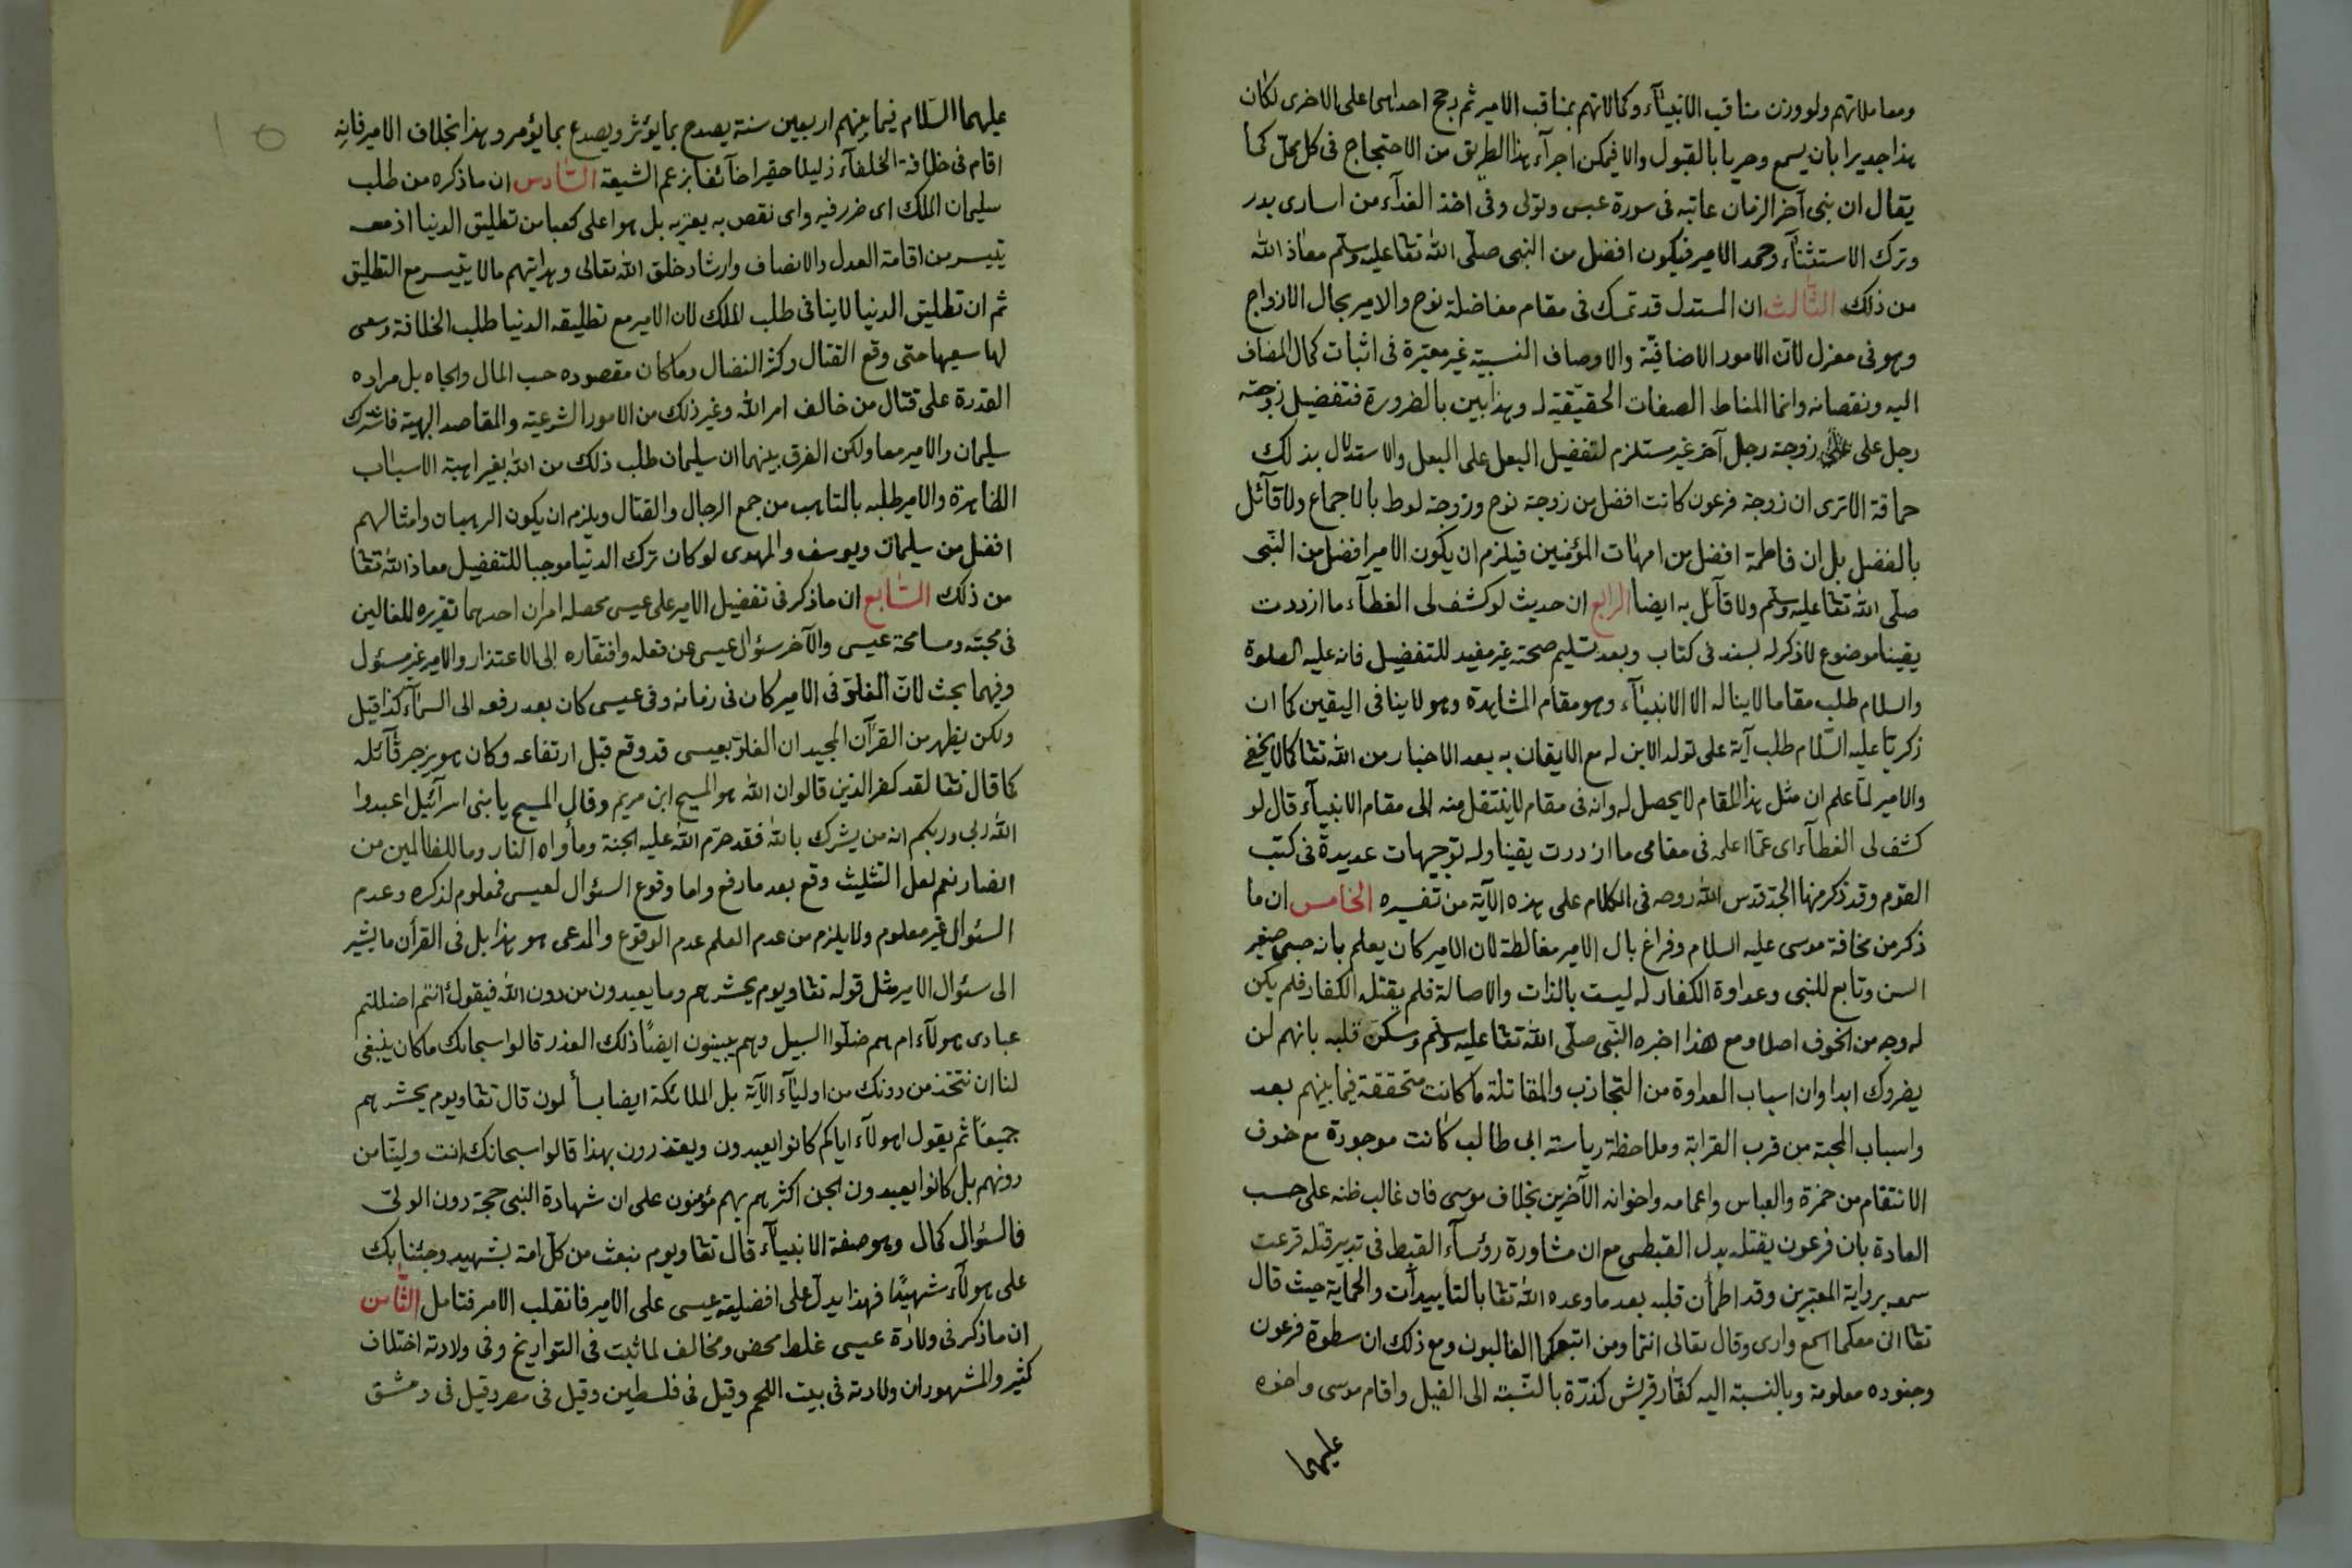 ومعاملاتهم ولو وزن مناقب الانبيآء وكمالاتهم بمناقب الامير ثم رجح احداهما على الاخرى لكان
هذا جديرا بان يسمع وحريا بالقبول والا فيمكن اجرآء هذا الطريق من الاحتجاج فى كل محل كما
يقال ان نبى آخر الزمان عاتبه فى سورة عبس وتولى وفى اخذ الفدآء من اسارى بدر
وترك الاستثنآء وحمد الامير فيكون افضل من النبى صلى الله تعا عليه وسلم معاذ الله
من ذلك الثالث ان المستدل قد تمسك فى مقام مفاضلة نوح والامير بحال الازواج
وهو فى معزل لان الامور الاضافية والاوصاف النسبية غير معتبرة فى اثبات كمال المضاف
اليه ونقصانه وانما المناط الصفات الحقيقية له وهذا بين بالضرورة فتفضيل زوجة
رجل على زوجة رجل آخر غير مستلزم لتفضيل البعل على البعل والاستدلال بذلك
حماقة الا ترى ان زوجة فرعون كانت افضل من زوجة نوح وزوجة لوط بالاجماع ولا قآئل
بالفضل بل ان فاطمة افضل من امهات المؤمنين فيلزم ان يكون الامير افضل من النبى
صلى الله تعا عليه وسلم ولا قآئل به ايضا الرابع ان حديث لو كشف لى الغطآء ما ازددت
يقينا موضوع لا ذكر له بسند فى كتاب وبعد تسليم صحته غير مفيد للتفضيل فانه عليه الصلوة
والسلام طلب مقاما لا يناله الا الانبيآء وهو مقام المشاهدة وهو لا ينافى اليقين كما ان
زكريا عليه السلام طلب آية على تولد الابن له مع الايقان به بعد الاخبار من الله تعا كما لا يخفى
والامير لما علم ان مثل هذا المقام لا يحصل له وانه فى مقام لا ينتقل منه الى مقام الانبيآء قال لو
كشف لى الغطآء اى عما اعلمه فى مقامى ما ازددت يقينا وله توجيهات عديدة فى كتب
القوم وقد ذكر منها الجد قدس الله روحه فى الكلام على هذه الآية من تفسيره الخامس ان ما
ذكر من مخافة موسى عليه السلام وفراغ بال الامير مغالطة لان الامير كان يعلم بانه صبى صغير
السن وتابع للنبى وعداوة الكفار له ليست بالذات والاصالة فلم يقتله الكفار فلم يكن
له وجه من الخوف اصلا ومع هذا اخبره النبى صلى الله تعا عليه وسلم وسكن قلبه بانهم لن
يضروك ابدا وان اسباب العداوة من التجاذب والمقاتلة ما كانت متحققة فيما بينهم بعد
واسباب المحبة من قرب القرابة وملاحظة رياسة ابى طالب كانت موجودة مع خوف
الانتقام من حمزة والعباس واعمامه واخوانه الآخرين بخلاف موسى فان غالب ظنه على حسب
العادة بان فرعون يقتله بدل القبطى مع ان مشاورة رؤسآء القبط فى تدبير قتله قرعت
سمعه برواية المعتبرين وقد اطمأن قلبه بعد ما وعده الله تعا بالتأييدات والحماية حيث قال
تعا انى معكما اسمع وارى وقال تعالى انتما ومن اتبعكما الغالبون ومع ذلك ان سطوة فرعون
وجنوده معلومة وبالنسبة اليه كفار قريش كذرة بالنسبة الى الفيل واقام موسى واخوه
عليهما
عليهما السلام فيما بينهم اربعين سنة يصدح بما يؤثر ويصدع بما يؤمر وهذا بخلاف الامير فانه
اقام فى خلافة الخلفآء ذليلا حقيرا خآئفا بزعم الشيعة السادس ان ما ذكره من طلب
سليمان الملك اى ضرر فيه واى نقص به يعتريه بل هو اعلى كعبا من تطليق الدنيا اذ معه
يتيسر من اقامة العدل والانصاف وارشاد خلق الله تعالى وهدايتهم ما لا يتيسر مع التطليق
ثم ان تطليق الدنيا لا ينافى طلب الملك لان الامير مع تطليقه الدنيا طلب الخلافة وسعى
لها سعيها حتى وقع القتال وكثر النضال وما كان مقصوده حب المال والجاه بل مراده
القدرة على قتال من خالف امر الله وغير ذلك من الامور الشرعية والمقاصد البهية فاشترك
سليمان والامير معا ولكن الفرق بينهما ان سليمان طلب ذلك من الله بغير اهبة الاسباب
الظاهرة والامير طلبه بالتاهب من جمع الرجال والقتال ويلزم ان يكون الرهبان وامثالهم
افضل من سليمان ويوسف والمهدى لو كان ترك الدنيا موجبا للتفضيل معاذ الله تعا
من ذلك السابع ان ما ذكر فى تفضيل الامير على عيسى محصله امران احدهما تقريره للغالين
فى محبته ومسامحة عيسى والآخر سؤال عيسى عن فعله وافتقاره الى الاعتذار والامير غير مسئول
وفيهما بحث لان الغلو فى الامير كان فى زمانه وفى عيسى كان بعد رفعه الى السمآء كذا قيل
ولكن يظهر من القرآن المجيد ان الغلو بعيسى قد وقع قبل ارتفاعه وكان هو يزجر قآئله
كما قال تعا لقد كفر الذين قالوا ان الله هو المسيح ابن مريم وقال المسيح يا بنى اسرآئيل اعبدوا
الله ربى وربكم انه من يشرك بالله فقد حرم الله عليه الجنة ومأواه النار وما للظالمين من
انصار نعم لعل التثليث وقع بعد ما رفع واما وقوع السؤال لعيسى فمعلوم لذكره وعدم
السئوال غير معلوم ولا يلزم من عدم العلم عدم الوقوع والمدعى هو هذا بل فى القرأن ما يشير
الى سئوال الامير مثل قوله تعا ويوم يحشرهم وما يعبدون من دون الله فيقول أانتم اضللتم
عبادى هولآء ام هم ضلوا السبيل وهم يبينون ايضًا ذلك العذر قالوا سبحانك ما كان ينبغى
لنا ان نتخذ من دونك من اوليآء الآية بل الملائكة ايضا يسألون قال تعا ويوم يحشرهم
جميعًا ثم يقول اهولآء اياكم كانوا يعبدون ويعتذرون بهذا قالوا سبحانك انت ولينا من
دونهم بل كانوا يعبدون الجن اكثرهم بهم مؤمنون على ان شهادة النبى حجة دون الولى
فالسئوال كمال وهو صفة الانبيآء قال تعا ويوم نبعث من كل امة بشهيد وجئنا بك
على هولآء شهيدًا فهذا يدل على افضلية عيسى على الامير فانقلب الامر فتامل الثامن
ان ما ذكر فى ولادة عيسى غلط محض ومخالف لما ثبت فى التواريخ وفى ولادته اختلاف
كثير والمشهور ان ولادته فى بيت اللحم وقيل فى فلسطين وقيل فى مصر وقيل فى دمشق